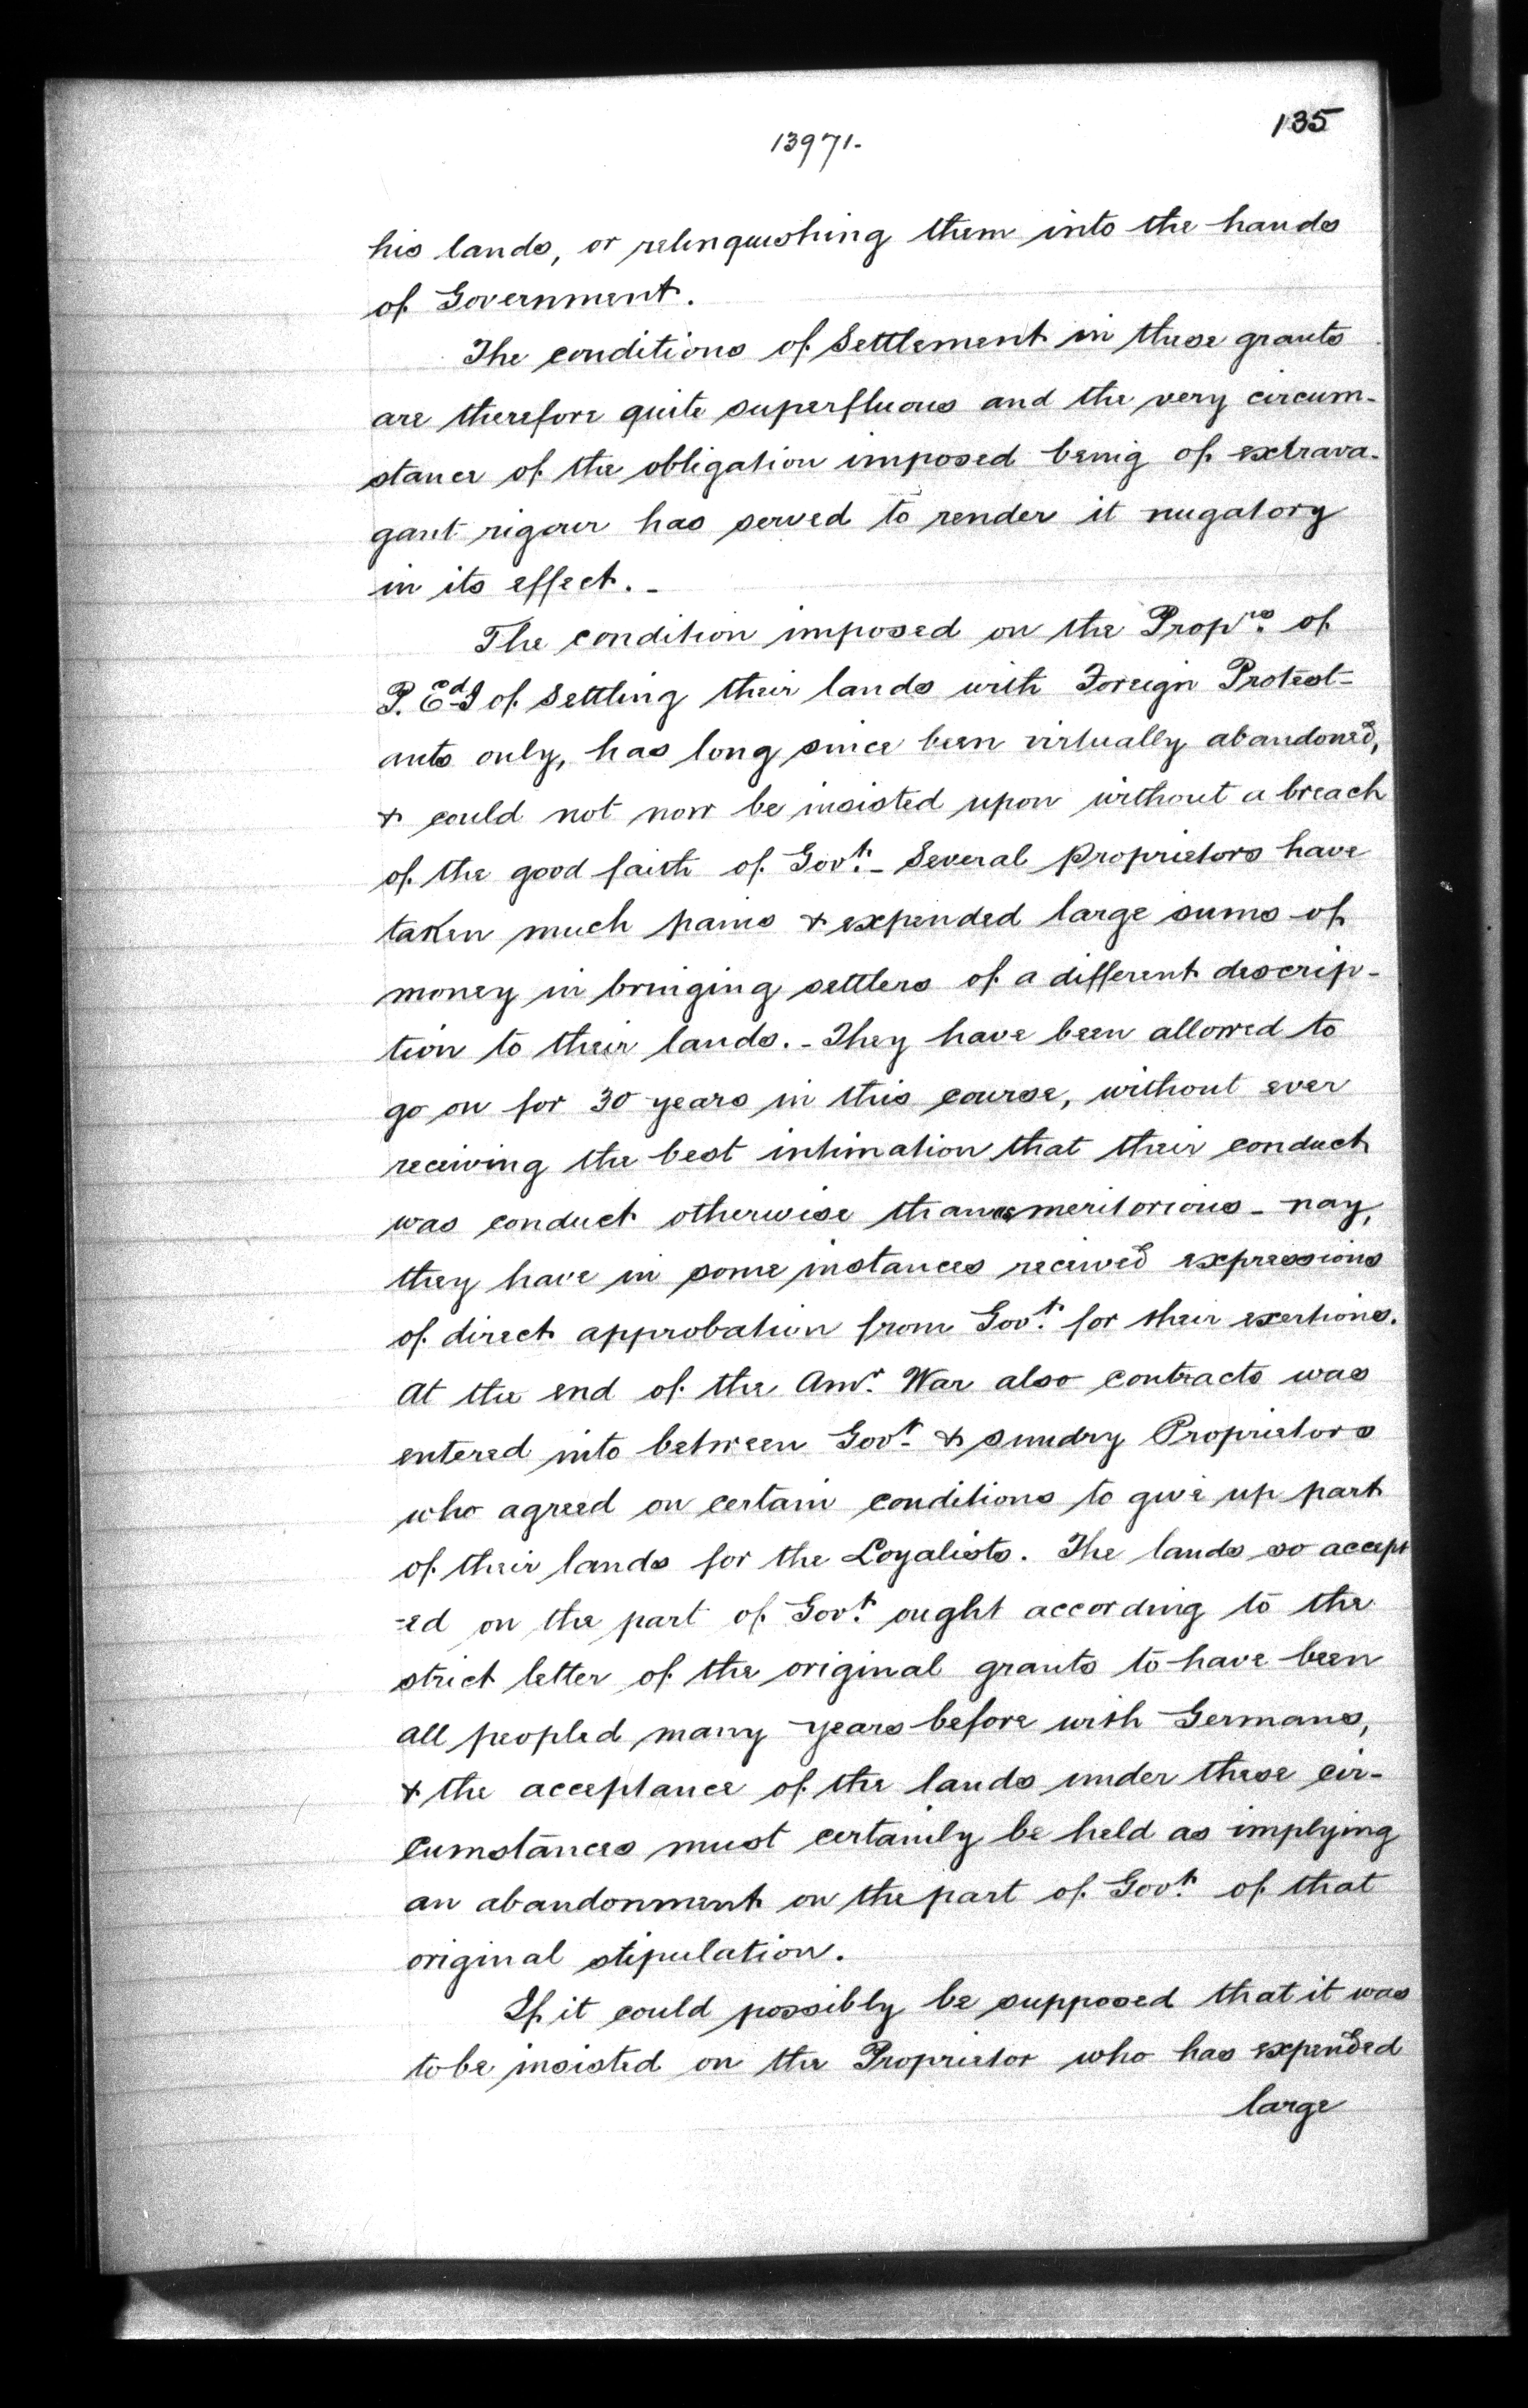 135
13971-
his lands, or relinquishing them into the hands
of Government.
The conditions of Settlement in these grants
are therefore quite superfluous and the very circum-
stance of the obligation imposed being of extrava-
gant rigour has served to render it nugatory
in its effect. -
The condition imposed on the Prop.rs of
P. Ed I of Settling their lands with Foreign Protest-
ants only, has long since been virtually abandoned,
& could not now be insisted upon without a breach
of the good faith of Gov.t - Several Proprietors have
taken much pains & expended large sums of
money in bringing settlers of a different descrip-
tion to their lands. - They have been allowed to
go on for 30 years in this course, without ever
receiving the best intimation that their conduct
was conduct otherwise than meritorious - nay,
they have in some instances received expressions
of direct approbation from Gov.t for their exertions.
At the end of the Amr. War also contracts was
entered into between Govt & sundry Proprietors
who agreed on certain conditions to give up part
of their lands for the Loyalists. The lands so accept
-ed on the part of Gov.t ought according to the
strict letter of the original grants to have been
all peopled many years before with Germans,
& the acceptance of the lands under these cir-
cumstances must certainly be held as implying
an abandonment on the part of Gov.t of that
original stipulation.
If it could possibly be supposed that it was
to be insisted on the Proprietor who has expended
large